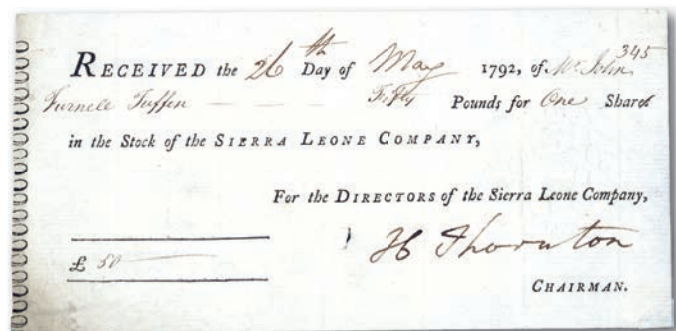 345
RECEIVED the 26th Day of May 1792, of Mr. John
Furnele Tuffin — — — Fifty Pounds for One Share
in the Stock of the SIERRA LEONE COMPANY,
For the DIRECTORS of the Sierra Leone Company,
H Thornton
£ 50
CHAIRMAN.